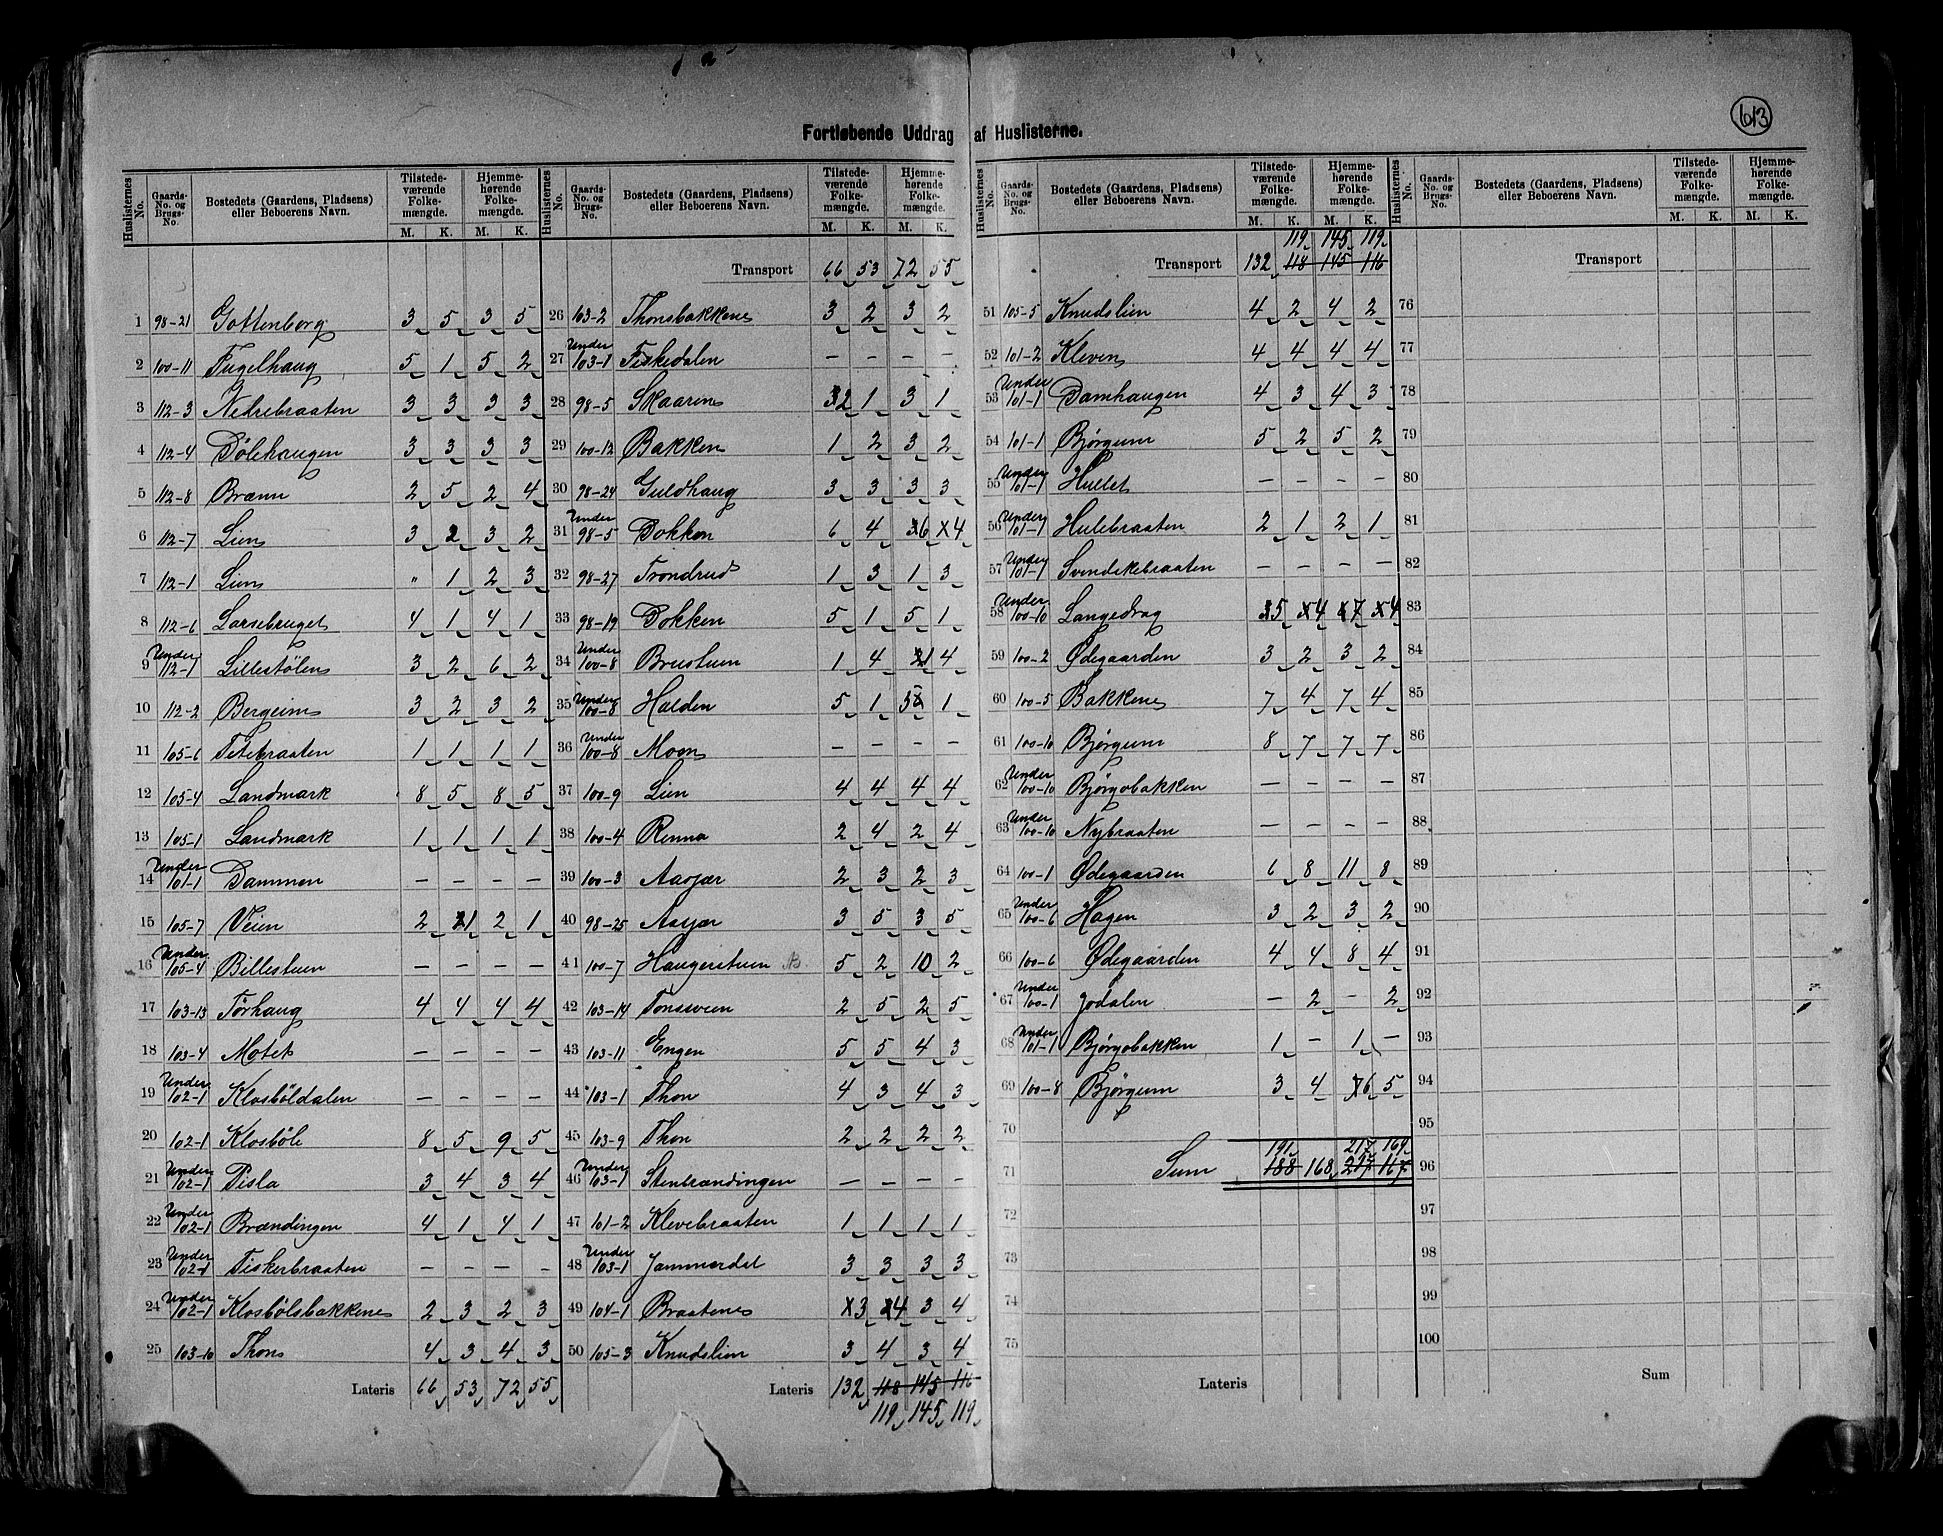 613
Fortløbende Uddrag af Huslisterne.
Huslisternes No. Gaards-No. og Brugs-No. Bostedets (Gaardens, Pladsens) eller Beboerens Navn. Tilstede-værende Folke-mængde. M. K. Hjemme-hørende Folke-mængde. M. K.
1 98-21 Gottenborg 3 5 3 5
2 100-11 Fugelhaug 5 1 5 2
3 112-3 Nedrebraaten 3 3 3 3
4 112-4 Dölehaugen 3 3 3 3
5 112-8 Brænn 2 5 2 4
6 112-7 Lien 3 2 3 2
7 112-1 Lien " 1 2 3
8 112-6 Larsebruget 4 1 4 1
9 Under 112-1 Lillestölen 3 2 6 2
10 112-2 Bergeim 3 2 3 2
11 105-6 1 1 1 1
12 105-4 Landmark 8 5 8 5
13 105-1 Landmark 1 1 1 1
14 Under 101-1 Dammen — — — —
15 105-7 Veien 2 1 2 1
16 Under 105-4 Billestuen — — — —
17 103-13 Törhaug 4 4 4 4
18 103-4 Motet — — — —
19 Under 102-1 Klosböldalen — — — —
20 102-1 Klosböle 8 5 9 5
21 Under 102-1 Tisla 3 4 3 4
22 Under 102-1 Brændingen 4 1 4 1
23 Under 102-1 Fiskerbraaten — — — —
24 Under 102-1 Klosbölsbakkene 2 3 2 3
25 103-10 Thon 4 3 4 3
Lateris 66 53 72 55
Huslisternes No. Gaards-No. og Brugs-No. Bostedets (Gaardens, Pladsens) eller Beboerens Navn. Tilstede-værende Folke-mængde. M. K. Hjemme-hørende Folke-mængde. M. K.
Transport 66 53 72 55
26 103-2 Thonsbakkene 3 2 3 2
27 Under 103-1 Fiskedalen — — — —
28 98-5 Skaaren 2 1 3 1
29 100-12 Bakken 1 2 3 2
30 98-24 Guldhaug 3 3 3 3
31 Under 98-5 Dokken 6 4 6 4
32 98-27 Trondrud 1 3 1 3
33 98-19 Dokken 5 1 5 1
34 Under 100-8 Brustuen 1 4 1 4
35 Under 100-8 Halden 5 1 5 1
36 Under 100-8 Moen — — — —
37 100-9 Lien 4 4 4 4
38 100-4 Renna 2 4 2 4
39 100-3 Aasjær 2 3 2 3
40 98-25 Aasjær 3 5 3 5
41 100-7 Haugerstuen 5 2 10 2
42 103-14 Tonsveien 2 5 2 5
43 103-11 Engen 5 5 4 3
44 103-1 Thon 4 3 4 3
45 103-9 Thon 2 2 2 2
46 Under 103-1 Stenbrændingen — — — —
47 101-2 Klevebraaten 1 1 1 1
48 Under 103-1 Jammerdal 3 3 3 3
49 104-1 Braatene 3 4 3 4
50 105-3 Knudslien 3 4 3 4
Lateris 132 118 145 116
119 145 119
Huslisternes No. Gaards-No. og Brugs-No. Bostedets (Gaardens, Pladsens) eller Beboerens Navn. Tilstede-værende Folke-mængde. M. K. Hjemme-hørende Folke-mængde. M. K.
119 145 119
Transport 132 118 145 116
51 105-5 Knudslien 4 2 4 2
52 101-2 Kleven 4 4 4 4
53 Under 101-1 Damhaugen 4 3 4 3
54 101-1 Bjørgum 5 2 5 2
55 Under 101-1 Hullet — — — —
56 Under 101-1 Hulebraaten 2 1 2 1
57 Under 101-1 Svendskebraaten — — — —
58 Under 100-10 Langedrag 5 4 7 4
59 100-2 Ødegaarden 3 2 3 2
60 100-5 Bakkene 7 4 7 4
61 100-10 Bjørgum 8 7 7 7
62 Under 100-10 Bjørgobakken — — — —
63 Under 100-10 Nybraaten — — — —
64 100-1 Ødegaarden 6 8 11 8
65 Under 100-6 Hagen 3 2 3 2
66 100-6 Ødegaarden 4 4 8 4
67 Under 100-1 Jodalen — 2 — 2
68 Under 101-1 Bjørgobakken 1 — 1 —
69 100-8 Bjørgum 3 4 6 5
70
191 217 164
71 Sum 188 168
72
73
74
75
Lateris
Huslisternes No. Gaards-No. og Brugs-No. Bostedets (Gaardens, Pladsens) eller Beboerens Navn. Tilstede-værende Folke-mængde. M. K. Hjemme-hørende Folke-mængde. M. K.
Transport
76
77
78
79
80
81
82
83
84
85
86
87
88
89
90
91
92
93
94
95
96
97
98
99
100
Sum